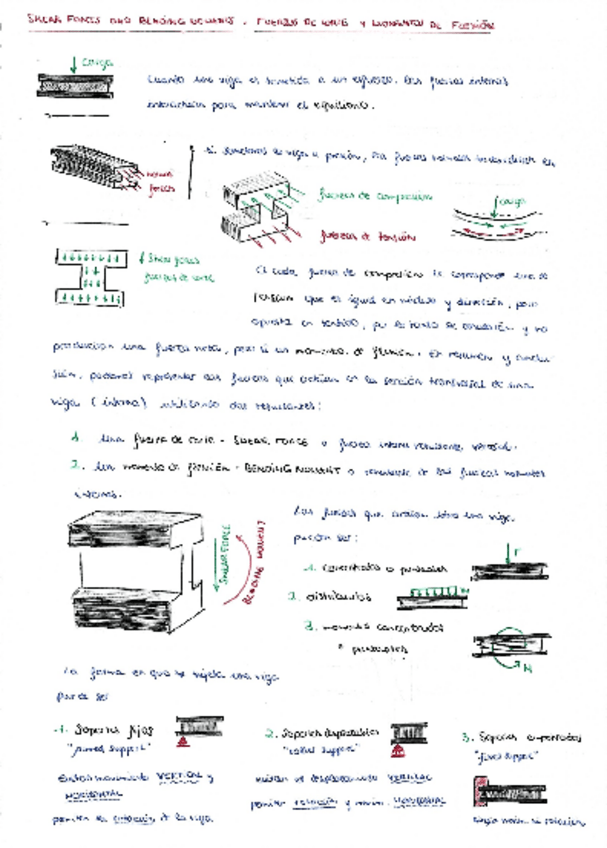 SHEAR FORCES AND BENDING MOMENTS. FUERZAS DE CORTE Y MOMENTOS DE FLEXIÓN
carga
Cuando una viga es sometida a un esfuerzo, las fuerzas internas
interactúan para mantener el equilibrio.
Si sometemos la viga a presión, las fuerzas normales
normal
forces
fuerzas de compresión
carga
fuerzas de tensión
Shear forces
fuerzas de corte
A cada fuerza de compresión le corresponde una de
tensión que es igual en módulo y dirección, pero
opuesta en sentido, por lo tanto se y no
producirán una fuerza neta, pero sí un momento de flexión. En resumen y
podemos representar las fuerzas que actúan en la sección transversal de una
viga (interna) utilizando dos resultantes:
1. Una fuerza de corte - SHEAR FORCE o fuerza interna resultante vertical.
2. Un momento de flexión - BENDING MOMENT o resultante de las fuerzas normales
internas.
SHEAR FORCE
BENDING MOMENT
Las fuerzas que actúan sobre una viga
pueden ser:
1. concentradas o puntuales
F
2. distribuidas
3. momentos concentrados
o puntuales
M
La forma en que se sujeta una viga
puede ser
1. Soportes fijos
"pinned support"
movimiento VERTICAL y
HORIZONTAL
permiten la rotación de la viga.
2. Soportes desplazables
"roller support"
desplazamiento VERTICAL
permiten rotación y movim. HORIZONTAL
3. Soportes empotrados
"fixed support"
ningún movim. ni rotación